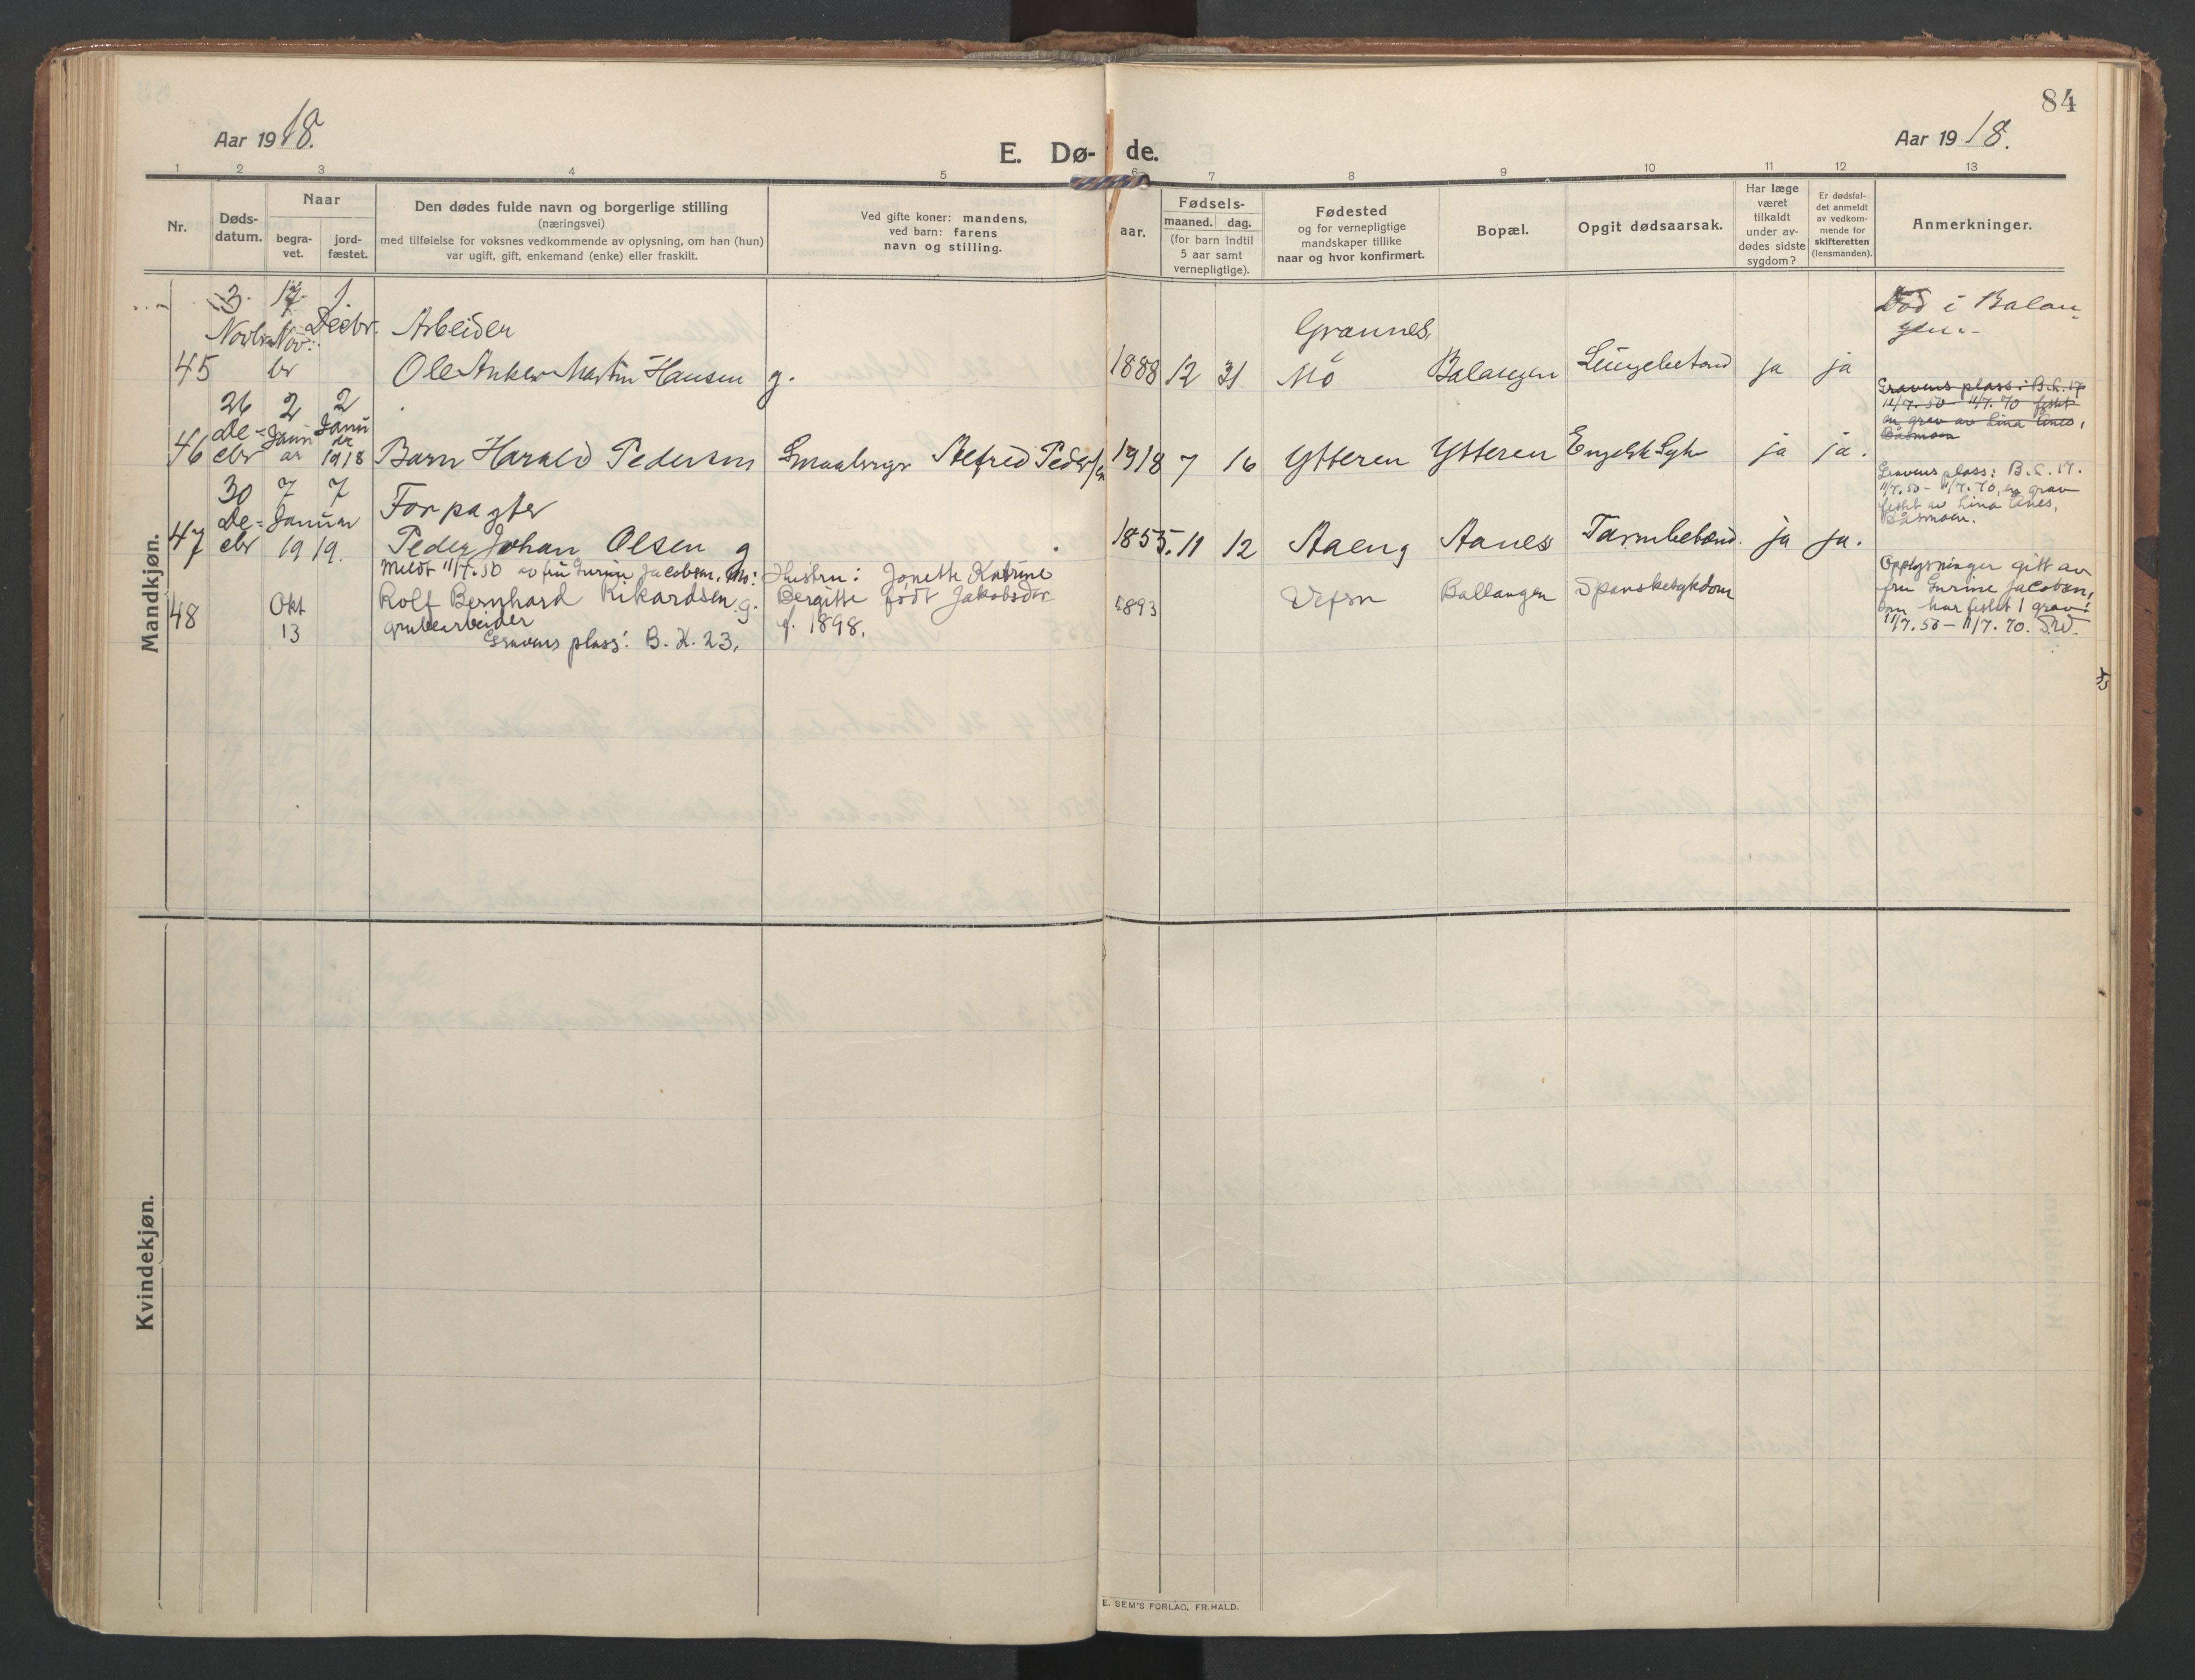 84
Aar 1918.
E. Dø- de.
Aar 1918.
1 2 3 4 5 6 7 8 9 10 11 12 13
Nr.
Døds-
datum.
Naar
begra-
vet.
jord-
fæstet.
Den dødes fulde navn og borgerlige stilling
(næringsvei)
med tilføielse for voksnes vedkommende av oplysning, om han (hun)
var ugift, gift, enkemand (enke) eller fraskilt.
Ved gifte koner: mandens,
ved barn: farens
navn og stilling.
Fødsels-
aar.
maaned. dag.
(for barn indtil
5 aar samt
vernepligtige).
Fødested
og for vernepligtige
mandskaper tillike
naar og hvor konfirmert.
Bopæl.
Opgit dødsaarsak.
Har læge
været
tilkaldt
under av-
dødes sidste
sygdom?
Er dødsfal-
det anmeldt
av vedkom-
mende for
skifteretten
(lensmanden).
Anmerkninger.
Mandkjøn.
3. 17 1.
Novbr Nov: Decbr. Arbeider Grannes,
45 br Ole Anker Martin Hansen g. 1888 12 31 Mo Balangen Lungebetænd ja ja
Død i Balan-
gen.-
26 2 2
De- Janu Janu
46 cbr ar ar 1918 Barn Harald Pedersen Smaabrger Alfred Pedersen 1918 7 16 Ytteren Ytteren Engelsk Syke ja ja.
Gravens plass: B.K. 17
11/7.50 - 11/7.70 festet
en grav av Lina Aanes,
Båsmoen
30 7 7
De- Januar Forpagter
47 cbr 1919. Peder Johan Olsen g 1855. 11 12 Aaeng Aanes Tarmbetænd. ja ja.
Gravens plass: B.K. 17.
11/7.50 - 11/7.70, en grav
festet av Lina Aanes,
Båsmoen.
Meldt 11/7.50 av fru Gurine Jacobsen, Mo: Hustru: Jonette Katrine
48 Okt Rolf Bernhard Rikardsen g. Bergitte født Jakobsdtr 1893 Vefsn Ballangen Spanskesykdom
13 grubearbeider f. 1898.
Gravens plass: B. K. 23.
Opplysninger gitt av
fru Gurine Jacobsen,
som har festet 1 grav:
11/7.50 - 11/7.70.
Kvindekjøn.
E. SEM'S FORLAG, FR.HALD.